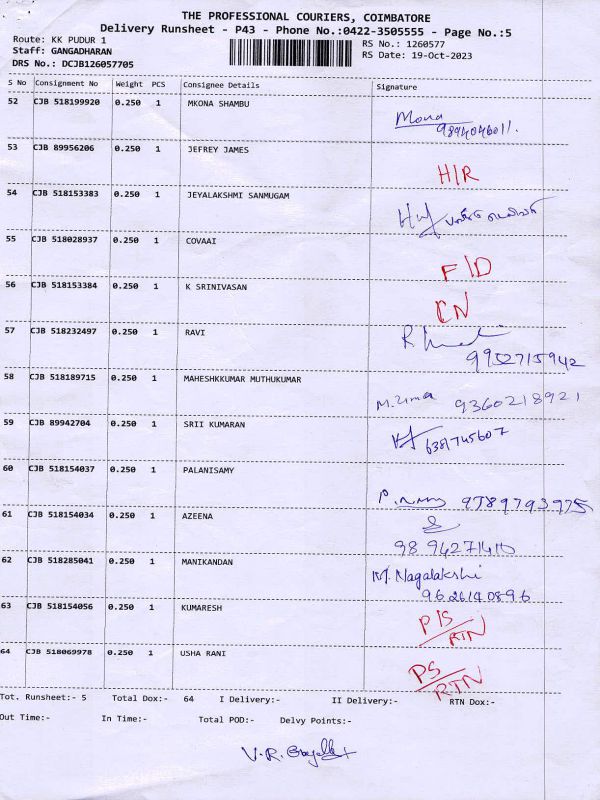 THE PROFESSIONAL COURIERS, COIMBATORE
Delivery Runsheet - P43 - Phone No.:0422-3505555 - Page No.:5
Route: KK PUDUR 1
RS No.: 1260577
Staff: GANGADHARAN
RS Date: 19-Oct-2023
DRS No.: DCJB126057705
S No Consignment No Weight PCS Consignee Details Signature
52 CJB 518199920 0.250 1 MKONA SHAMBU
Mona
9894046011.
53 CJB 89956206 0.250 1 JEFREY JAMES
H/R
54 CJB 518153383 0.250 1 JEYALAKSHMI SANMUGAM
55 CJB 518028937 0.250 1 COVAAI
F/D
56 CJB 518153384 0.250 1 K SRINIVASAN
CN
57 CJB 518232497 0.250 1 RAVI
9952715942
58 CJB 518189715 0.250 1 MAHESHKKUMAR MUTHUKUMAR
M. Uma 9360218921
59 CJB 89942704 0.250 1 SRII KUMARAN
6381745607
60 CJB 518154037 0.250 1 PALANISAMY
9789793975
61 CJB 518154034 0.250 1 AZEENA
9894271410
62 CJB 518285041 0.250 1 MANIKANDAN
M. Nagalakshi
9626140896
63 CJB 518154056 0.250 1 KUMARESH
P/S
RTN
64 CJB 518069978 0.250 1 USHA RANI
PS
RTN
Tot. Runsheet:- 5 Total Dox:- 64 I Delivery:- II Delivery:- RTN Dox:-
Out Time:- In Time:- Total POD:- Delvy Points:-